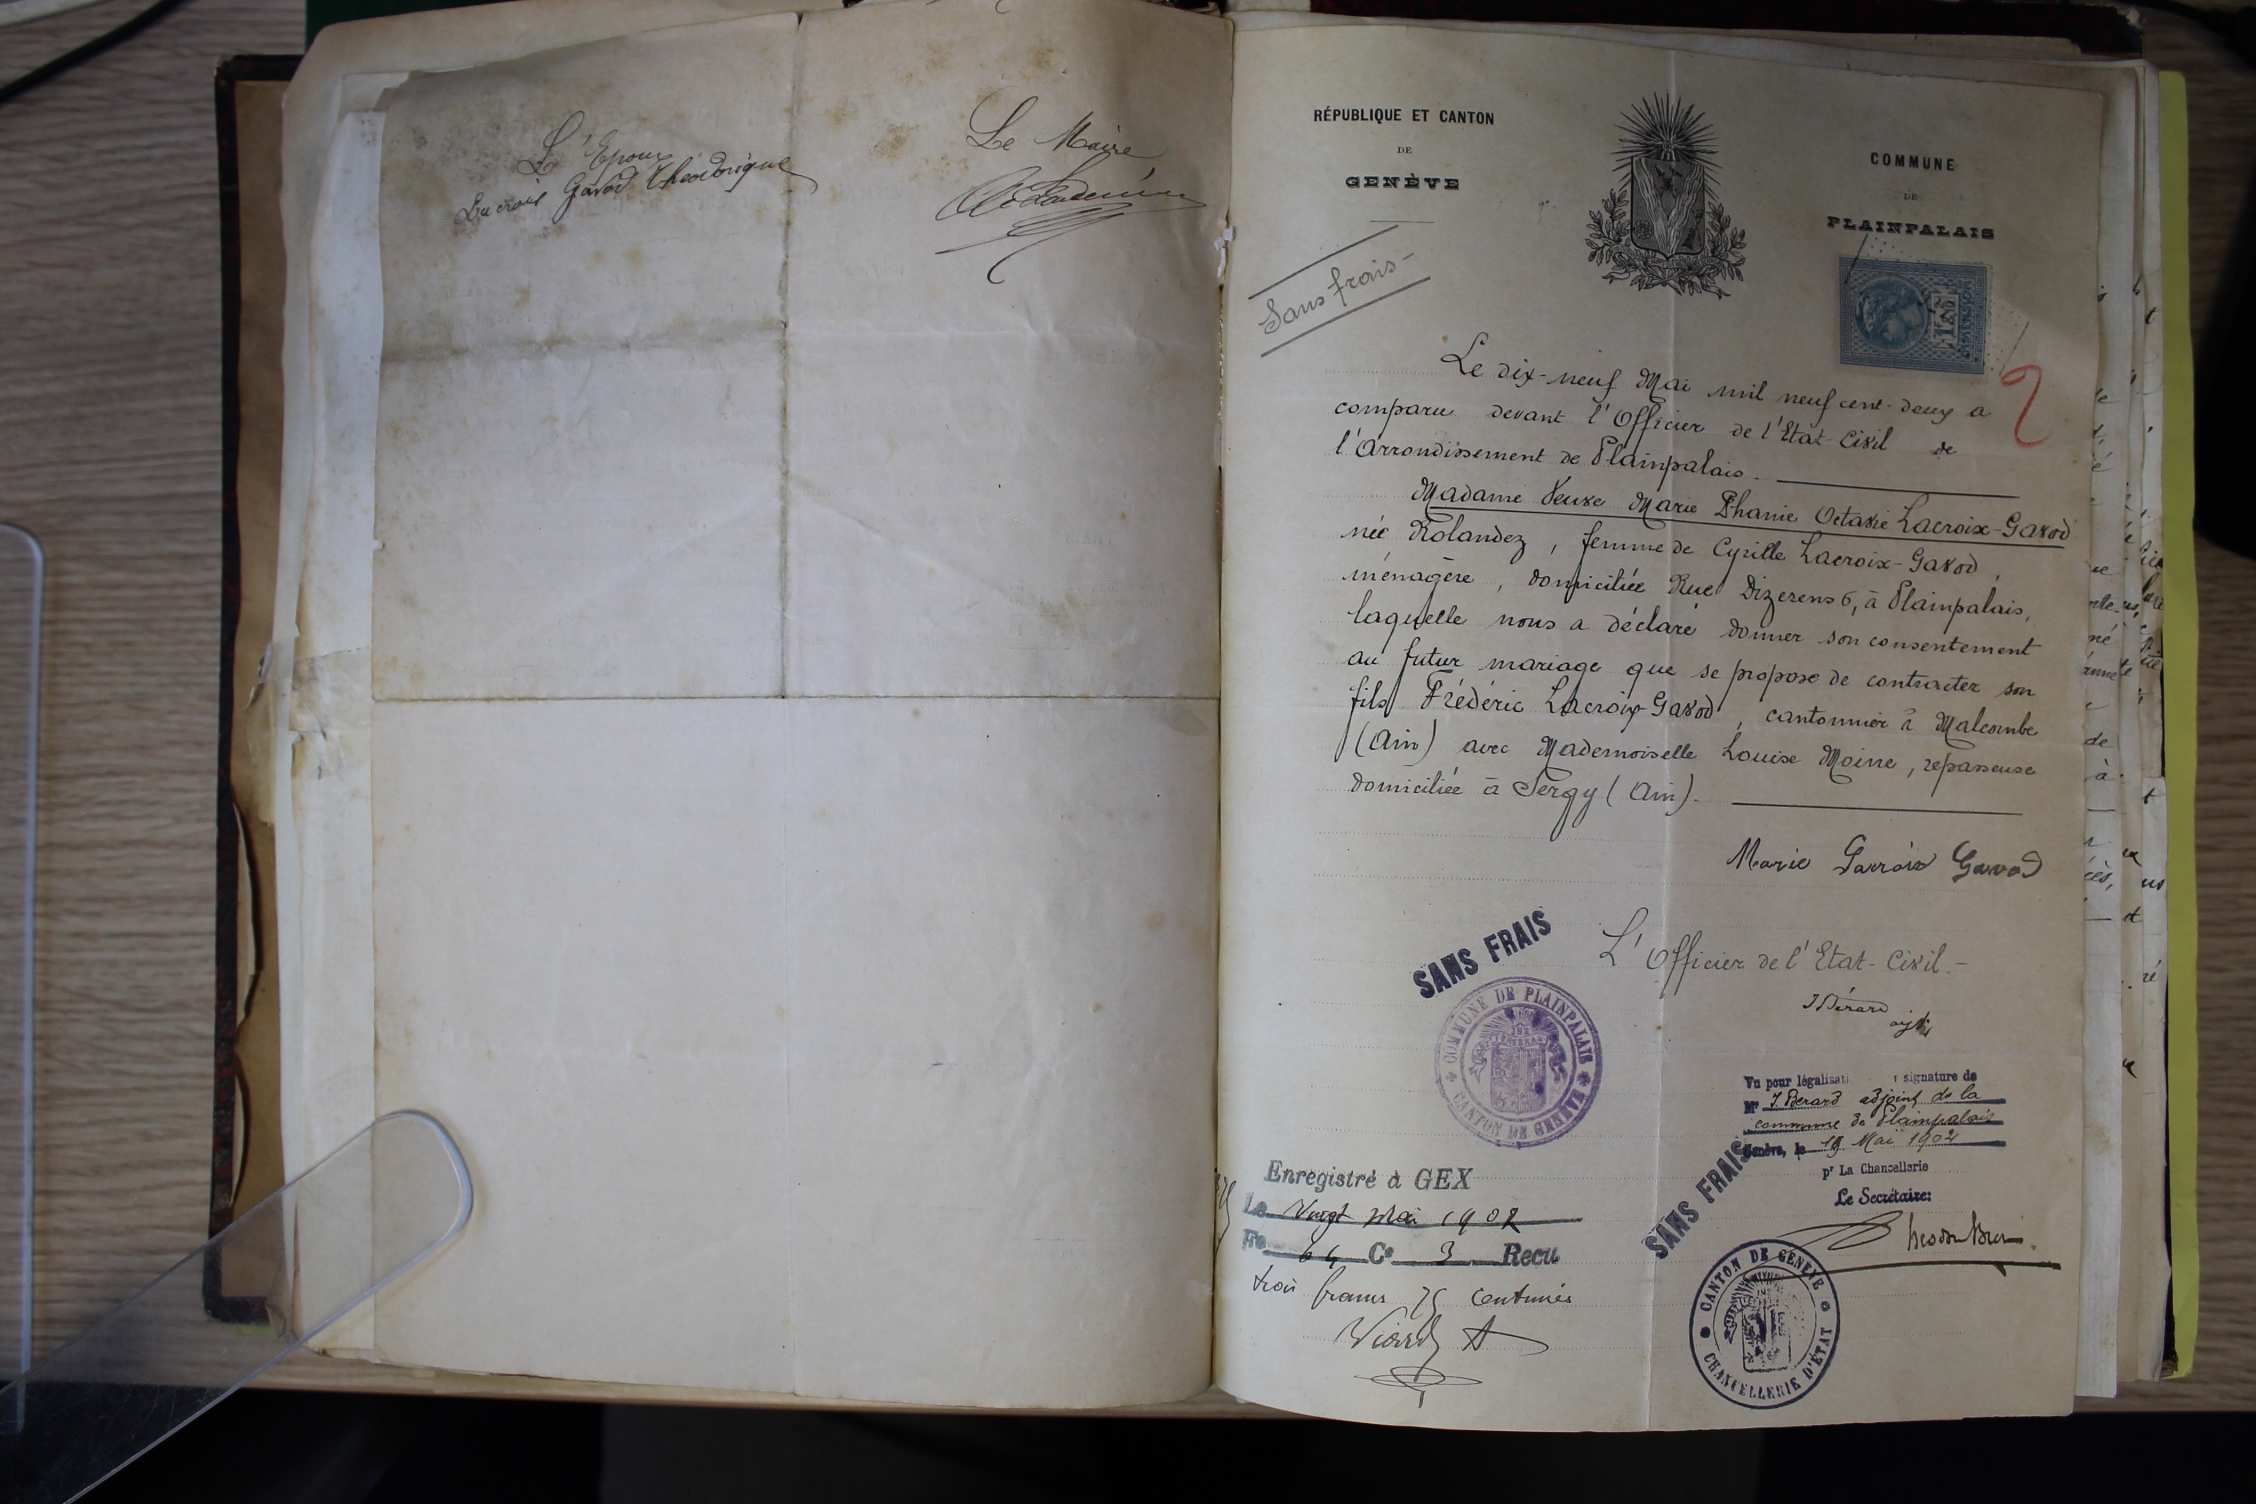 L'Epoux
Lacroix Gavod
Le Maire
RÉPUBLIQUE ET CANTON
DE
GENÈVE
COMMUNE
DE
PLAINPALAIS
Sans frais-
2
Le dix-neuf Mai mil neuf cent-deux a
comparu devant l'Officier de l'Etat-Civil de
l'Arrondissement de Plainpalais.
Madame Veuve Marie Phanie Octavie Lacroix-Gavod
née Rolandez, femme de Cyrille Lacroix-Gavod,
ménagère, domiciliée Rue Dizerens 6, à Plainpalais,
laquelle nous a déclaré donner son consentement
au futur mariage que se propose de contracter son
fils Frédéric Lacroix-Gavod, cantonnier à Malcombe
(Ain) avec Mademoiselle Louise Moine, repasseuse
domiciliée à Sergy (Ain).
Marie Lacroix Gavod
SANS FRAIS
L'Officier de l'Etat-Civil.-
J Bérard
COMMUNE DE PLAINPALAIS
CANTON DE GENÈVE
Vu pour légalisati signature de
Mr J. Berard adjoint de la
commune de Plainpalais
Genève, le 19 Mai 1902
pr La Chancellerie
Le Secrétaire:
SANS FRAIS
CANTON DE GENÈVE
CHANCELLERIE D'ÉTAT
Enregistré à GEX
Le Vingt Mai 1902
Fo 64 Ce 3 Recu
trois francs 75 centimes